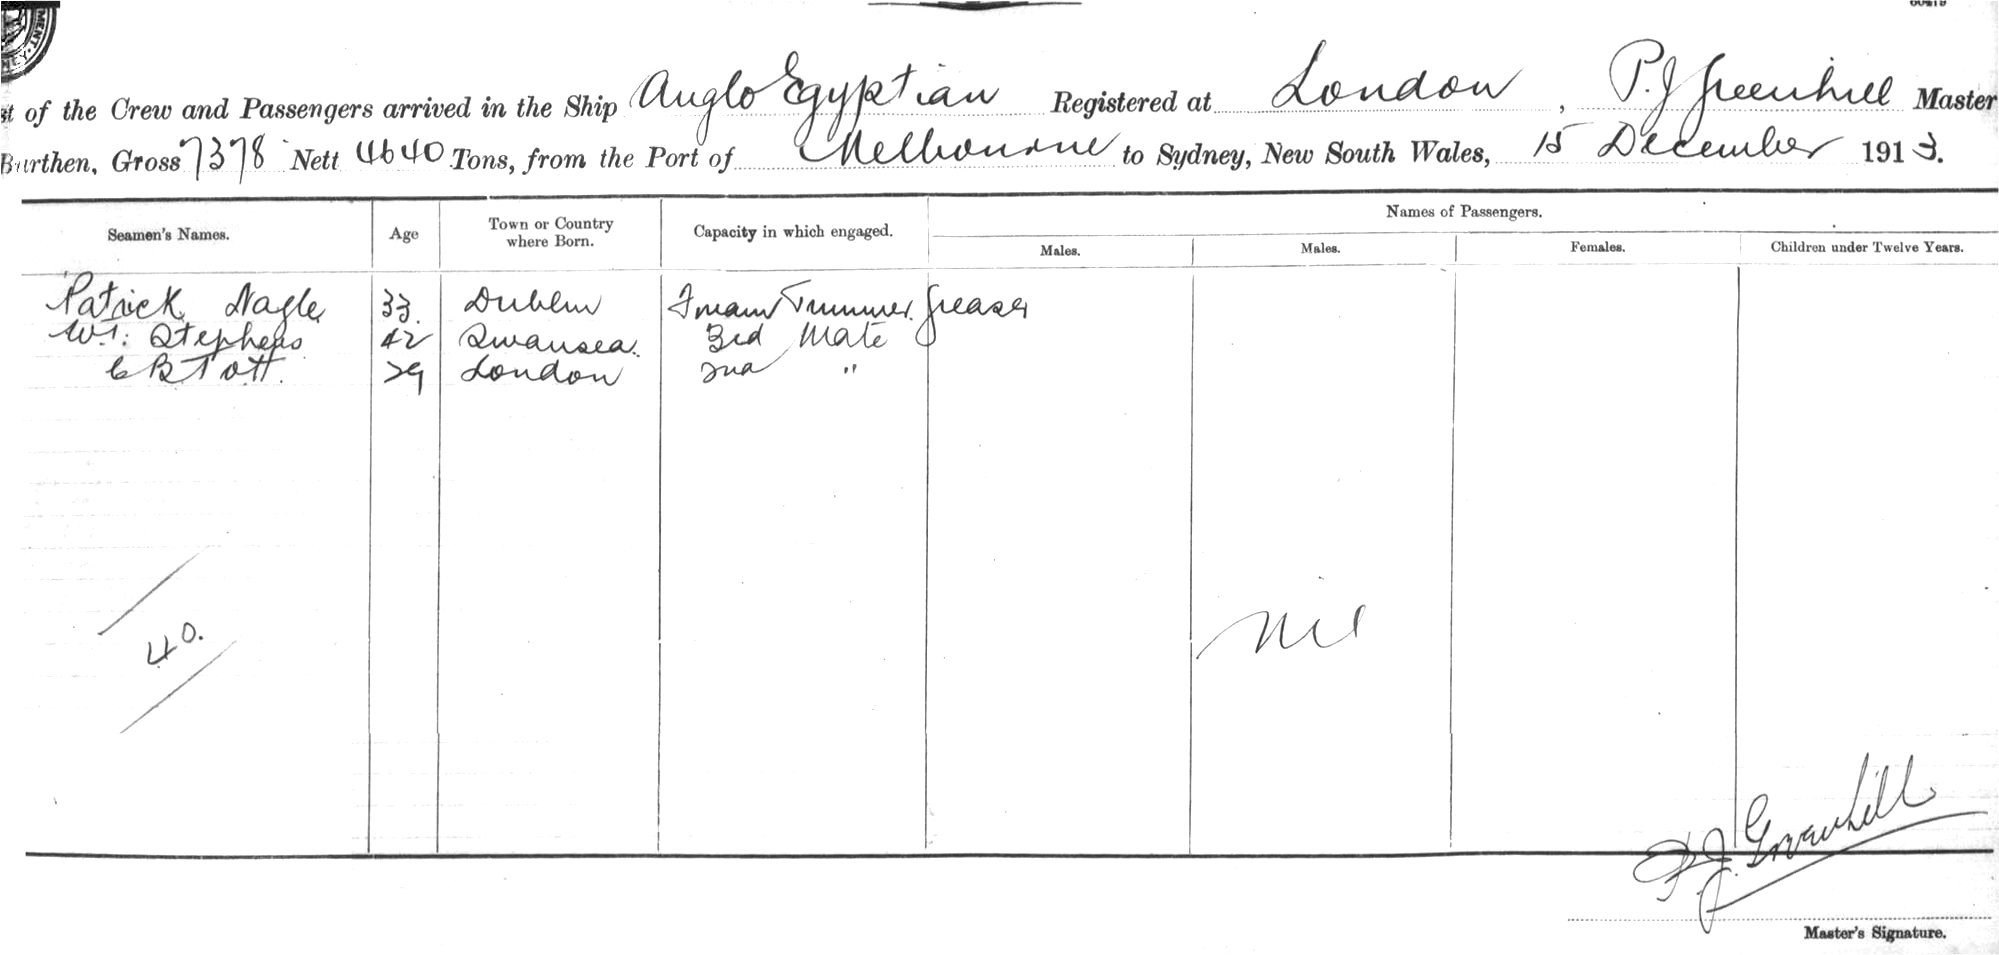 st of the Crew and Passengers arrived in the Ship Anglo Egyptian Registered at London, P. J Greenhill Master
Burthen, Gross 7378 Nett 4640 Tons, from the Port of Melbourne to Sydney, New South Wales, 15 December 1913.
Seamen's Names. Age Town or Country where Born. Capacity in which engaged. Names of Passengers.
Males. Males. Females. Children under Twelve Years.
Patrick Nagle 33. Dublin Trimmer. Greaser
Wm: Stephens 42 Swansea. 3rd Mate
C B Tott. 29 London 2nd "
40.
Nil
P. J. Greenhill
Master's Signature.